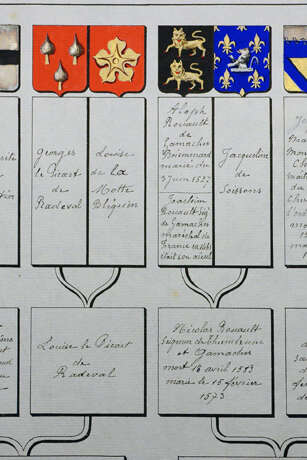 Georges
le Picart
de
Radeval
Louise
de la
Motte
Bléquin
Aloph
Rouault
de
Gamaches
marié du
3 juin 1527
Joachim
Rouault Sig
de Gamaches
maréchal de
France en 1461
était son aïeul
Jacqueline
de
Soissons
Louise le Picart
de
Radeval
Nicolas Rouault
Seigneur de Thiembrune
et Gamaches
mort 16 avril 1583
marié le 15 février
1573